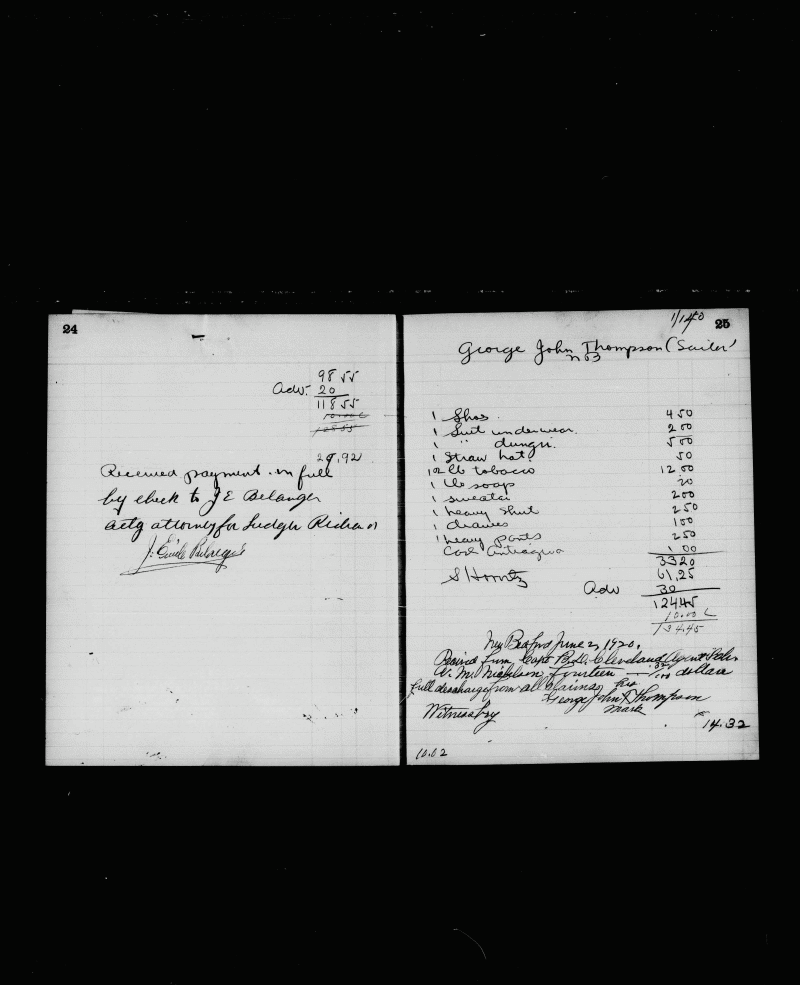 24
98 55
Adv. 20
118 55
10.00 L
128 55
29.92
Received payment in full
by check to J E Belanger
actg attorney for Ludger
25
George John Thompson (Sailor)
1 Shos 4 50
1 Suit underwear 2 00
1 " dungri. 5 00
1 Straw hat. 50
lb tobacco 12 00
1 lb soap 20
1 sweater 2 00
1 heavy Shirt 2 50
1 drawes 1 00
1 heavy pants 2 50
Cash 1 00
33 20
S Horvitz 61.25
Adv 30
124 45
10.00 L
134.45
New Bedford June 2, 1920.
Received from Capt B. D. Cleveland Agent Schr.
Nicholson, fourteen dollars
full discharge from all claims his
George John X Thompson
mark
Witness by
14.32
10.02